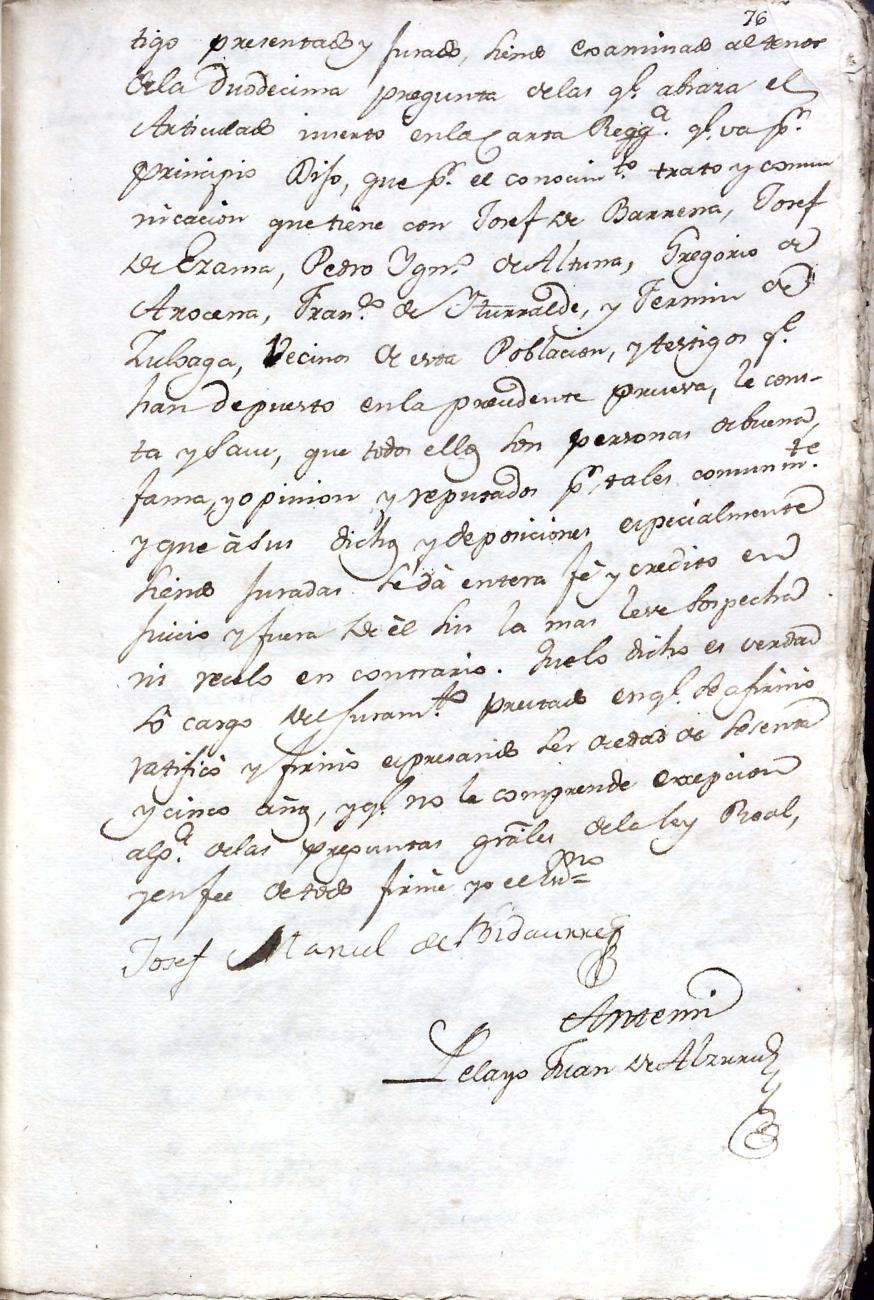 76
tigo presentado y jurado, siendo examinado al tenor
de la Duodecima pregunta de las ql. abraza el
Articulado inserto en la Carta Reqq.ª ql. va pr.
principio Dijo, que pr. el conocim.to trato y comu
nicacion que tiene con Josef de Barrena, Josef
de Erama, Pedro Ygn.º de Altuna, Gregorio de
Arocena, Fran.co de Yturralde, y Fermin de
Zuloaga, Vecinos de esta Poblacion, y testigos ql.
han depuesto en la precedente prueva, le cons-
ta y save, que todos ellos son personas de buena
fama, y opinion y reputados pr. tales comunm.te
y que à sus dichos y deposiciones especialmente
siendo juradas se dà entera fé y credito en
juicio y fuera de èl sin la mas leve sospecha
ni recelo en contrario. Que lo dicho es verdad
so cargo del juram.to prestado en ql. se afirmó
ratificó y firmó expresando ser de edad de sesenta
y cinco años, y ql. no le comprende excepcion
alg.ª de las preguntas grales de la ley Real,
y en fee de todo firmé yo el Ess.no =
Josef Manuel de Bidaurre
Antemi
Pelayo Juan de Alzuru